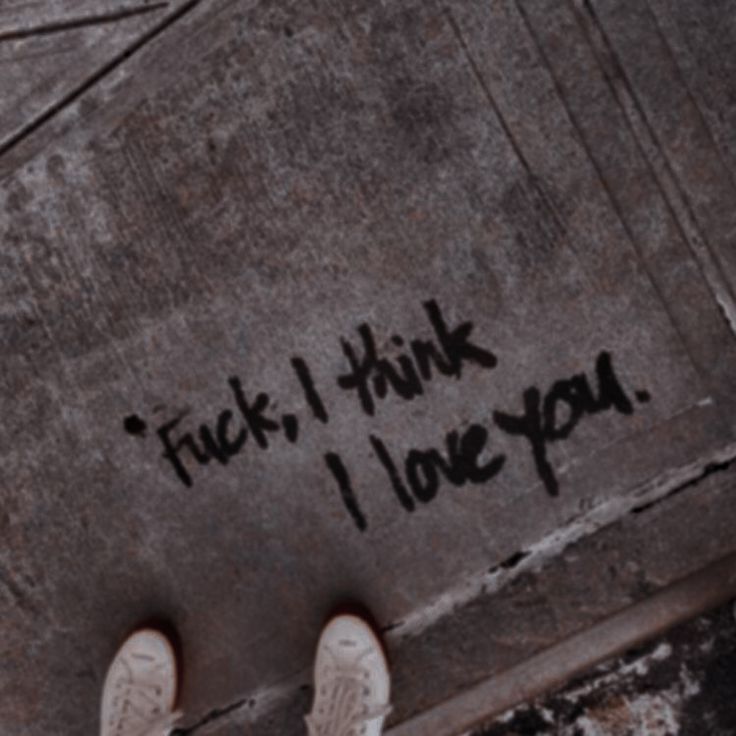 Fuck, I think
I love you.